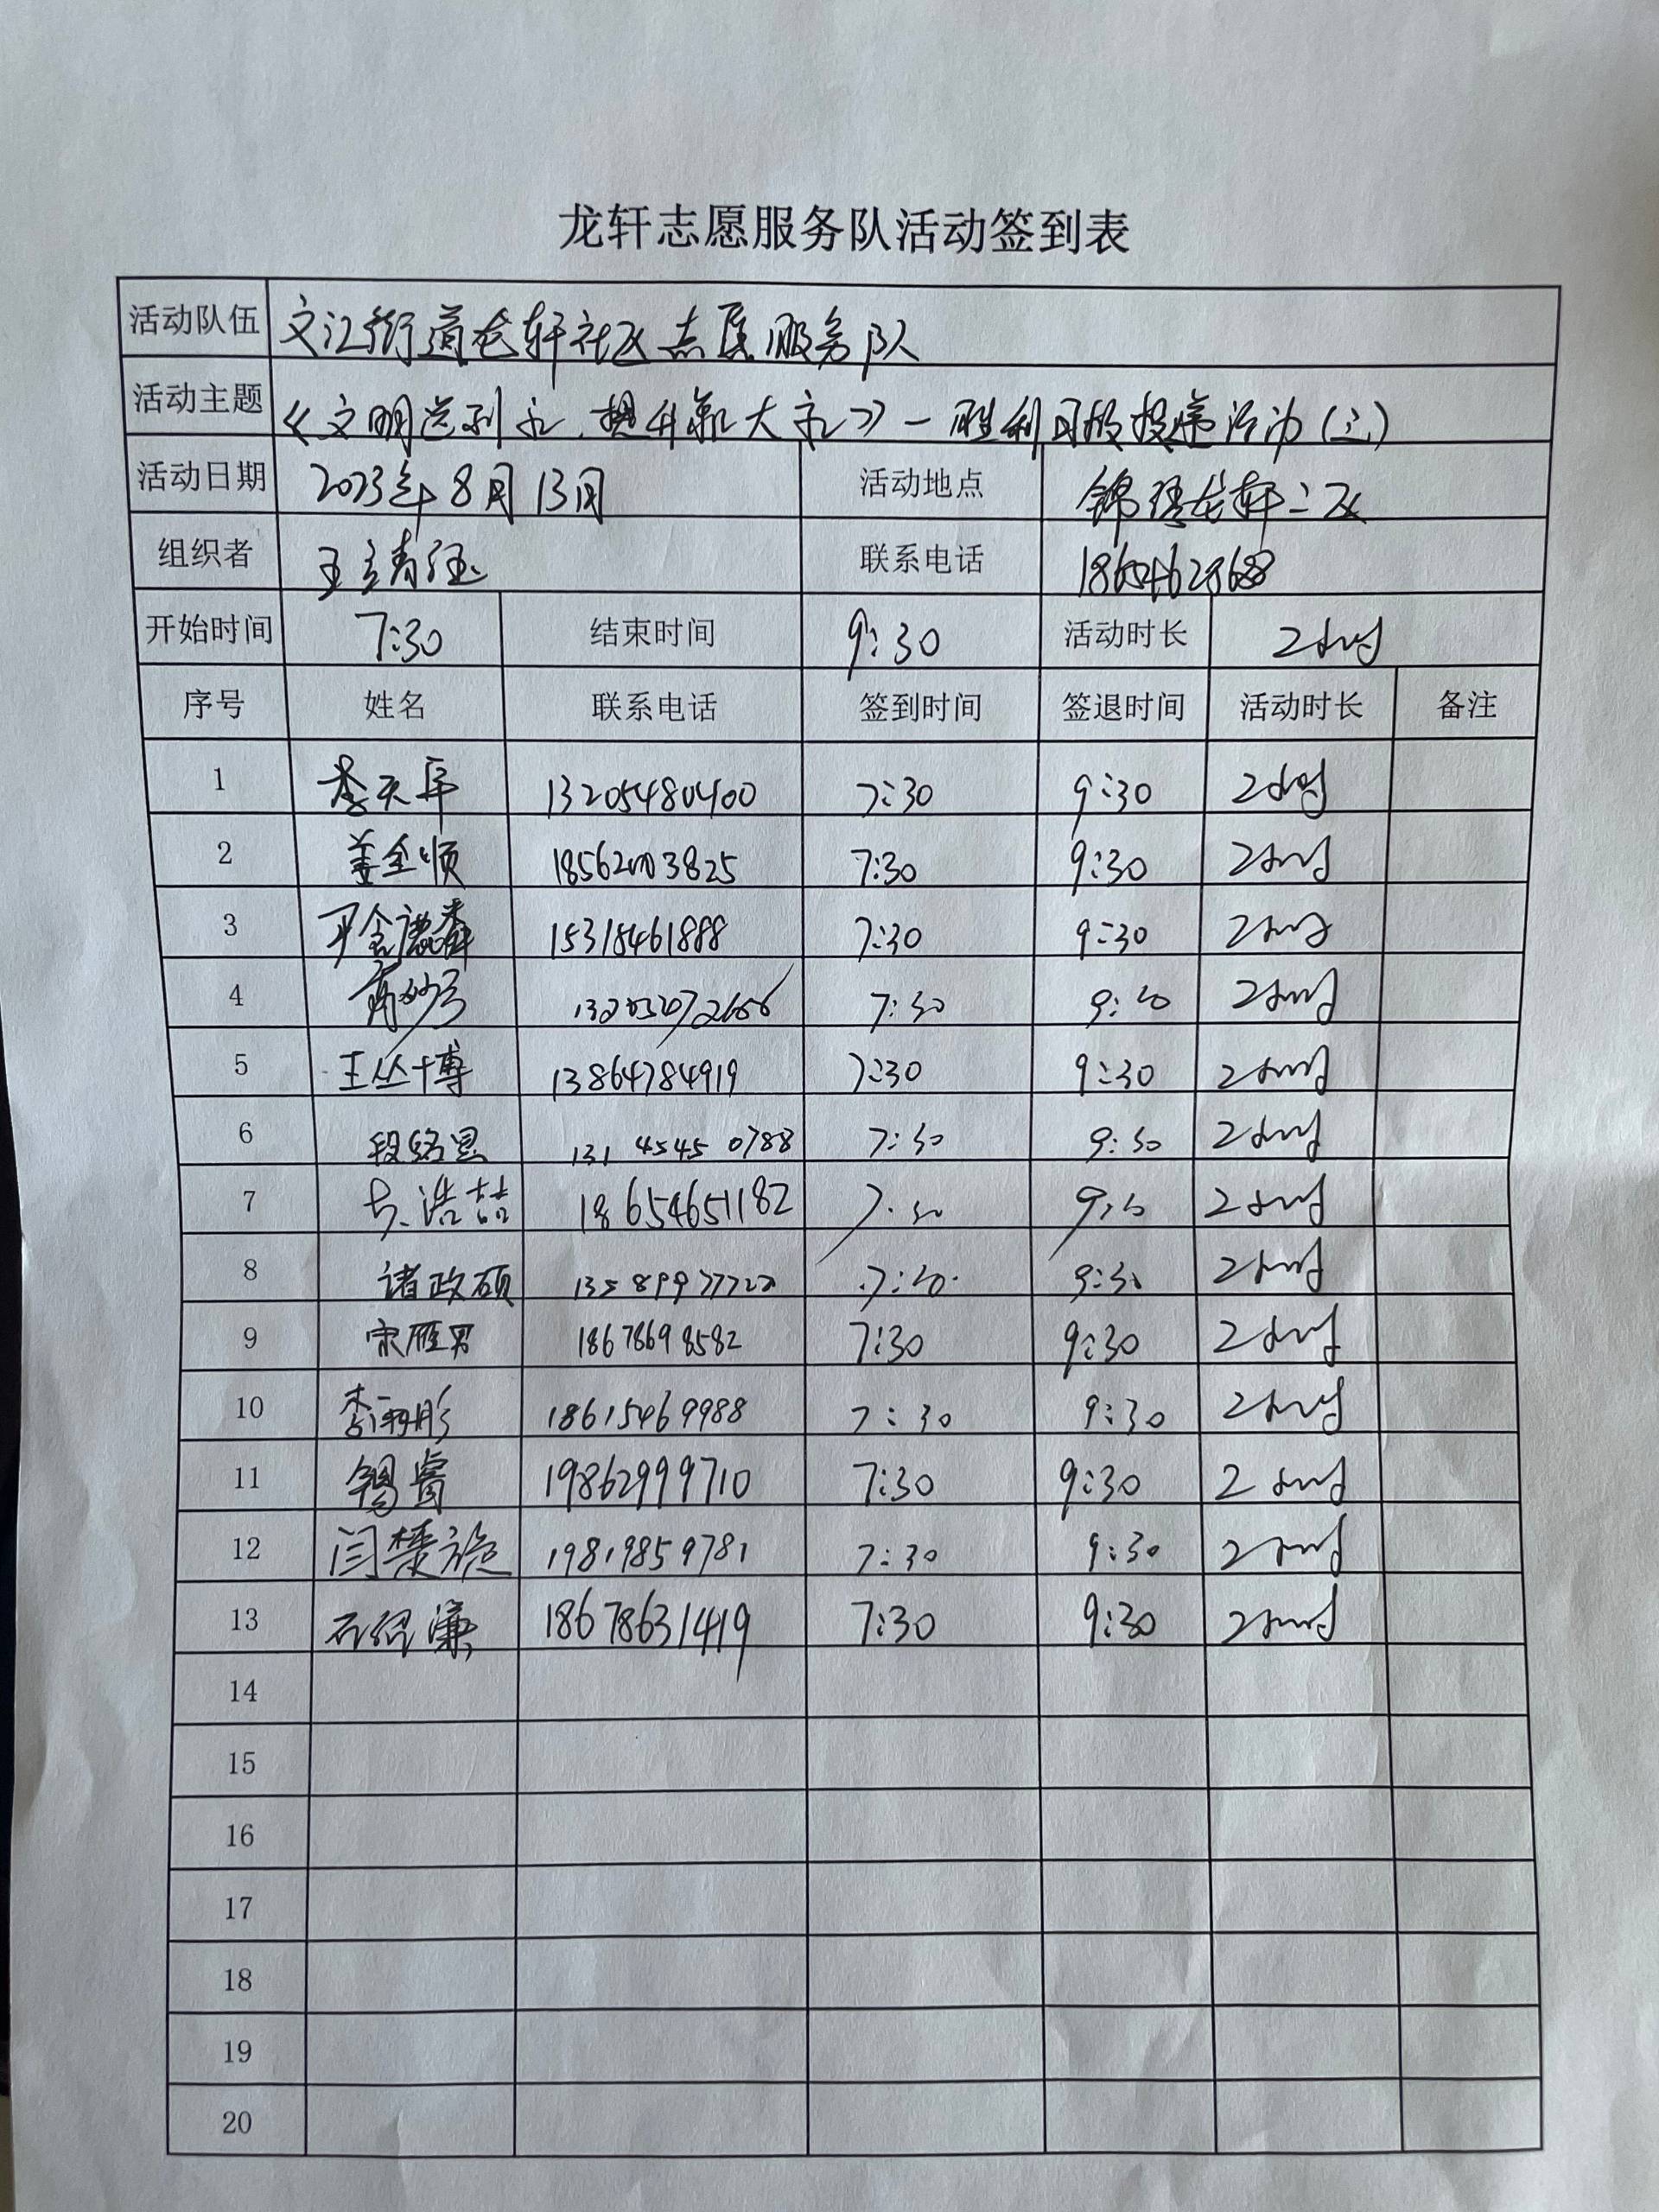 龙轩志愿服务队活动签到表
活动队伍 文汇街道龙轩社区志愿服务队
活动主题 《文明送到家,提升新大家》—胜利日报投递活动(三)
活动日期 2023年8月13日 活动地点 锦璟龙轩二区
组织者 王 联系电话
开始时间 7:30 结束时间 9:30 活动时长 2小时
序号 姓名 联系电话 签到时间 签退时间 活动时长 备注
1 李天 13205480400 7:30 9:30 2小时
2 姜全顺 18562003825 7:30 9:30 2小时
3 15315461888 7:30 9:30 2小时
4 7:30 9:30 2小时
5 王丛博 13864784919 7:30 9:30 2小时
6 段铭 131 4545 0788 7:30 9:30 2小时
7 浩喆 18654651182 7:30 9:30 2小时
8 诸政硕 7:30 9:30 2小时
9 宋雁男 18678698582 7:30 9:30 2小时
10 李雨彤 18615469988 7:30 9:30 2小时
11 睿 19862999710 7:30 9:30 2小时
12 闫楚旖 19819859781 7:30 9:30 2小时
13 石绍濂 18678631419 7:30 9:30 2小时
14
15
16
17
18
19
20